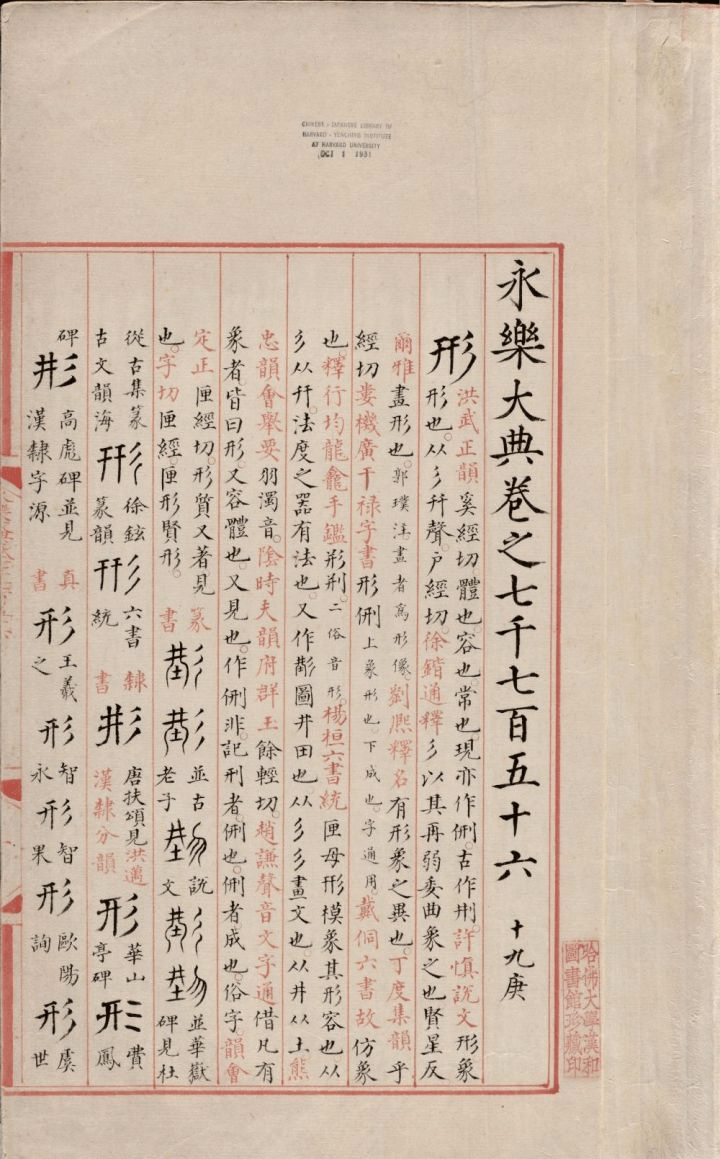 CHINESE - JAPANESE LIBRARY OF
HARVARD - YENCHING INSTITUTE
AT HARVARD UNIVERSITY
OCT 1 1931
永樂大典卷之七千七百五十六 十九庚
形 洪武正韻奚經切體也容也常也現亦作侀古作𠛬許慎說文形象
形也从彡幵聲戶經切徐鍇通釋彡以其再弱委曲象之也賢星反
爾雅畫形也郭璞注畫者為形像劉熙釋名有形象之異也丁度集韻乎
經切婁機廣干祿字書形侀上象形也下成也字通用戴侗六書故仿象
也釋行均龍龕手鑑形㓝二俗音形楊桓六書統匣母形模象其形容也从
彡从幵法度之器有法也又作圖井田也从彡彡畫文也从井从土熊
忠韻會舉要羽濁音陰時夫韻府群玉餘輕切趙謙聲音文字通借凡有
象者皆曰形又容體也又見也作侀非記刑者侀也侀者成也俗字韻會
定正匣經切形質又著見也字切匣經匣形賢形
篆書 並古老子 說文 並華嶽碑見杜
從古集篆古文韻海 徐鉉篆韻 六書統
隸書 唐扶頌見洪邁漢隸分韻 形 華山亭碑 形 費鳳
碑 高彪碑並見漢隸字源
真書 形 王羲之 形 智永 形 智果 形 歐陽詢 形 虞世
哈佛大學漢和
圖書館珍藏印